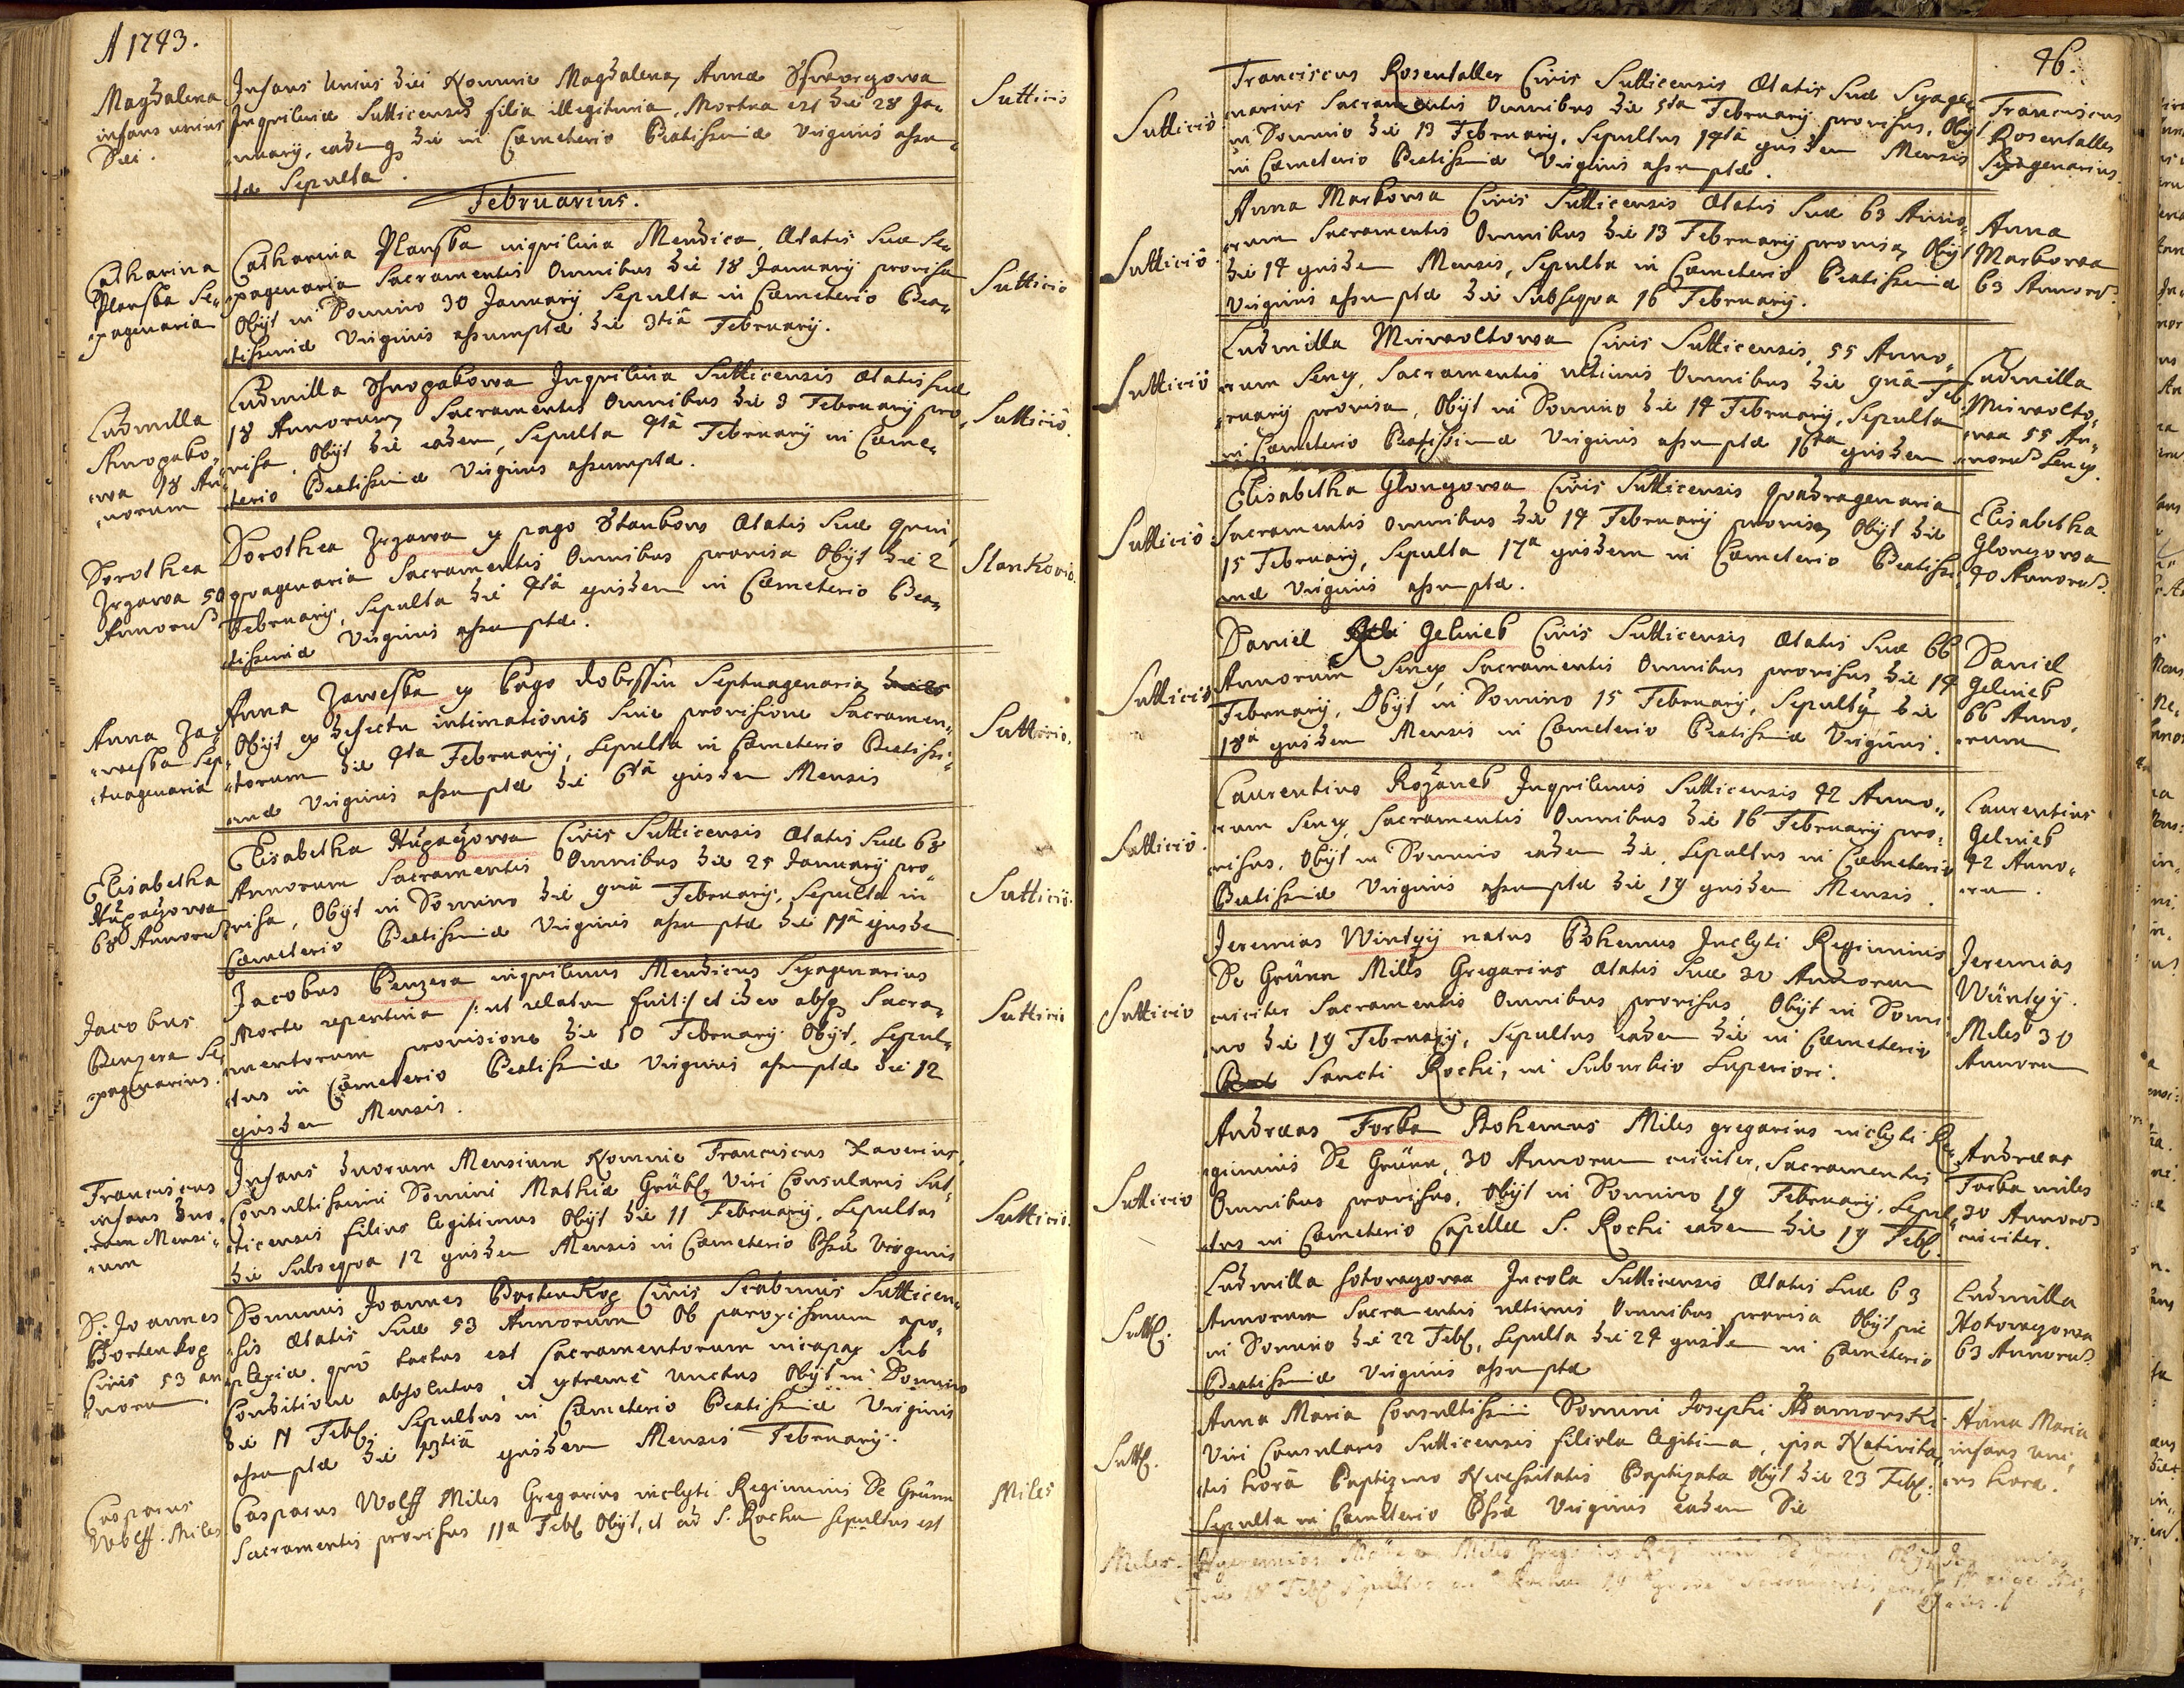 A 1743.
Magdalena
infans unius
Diei.
Infans Unius diei Nomine Magdalena, Annæ
Inquilinæ Sutticensis filia illegitima, Mortua est die 28 Ja-
nuarij, eademq die in Cæmeterio Beatissimæ Virginis assum-
tæ Sepulta.
Sutticio
Februarius.
Catharina
Planska Se-
xagenaria
Catharina Planska inquilina Mendica, Ætatis Suæ Se-
xagenaria Sacramentis Omnibus die 18 Januarij provisa
Obijt in Domino 30 Januarij Sepulta in Cæmeterio Bea-
tissimæ Virginis assumptæ die 3tiâ Februarij.
Sutticio
Ludmilla
wa 18 An-
norum
Ludmilla Inquilina Sutticensis ætatis suæ
18 Annorum, Sacramentis Omnibus die 3 Februarij pro-
visa, Obijt die eadem, Sepulta 4tâ Februarij in Cæme-
terio Beatissimæ Virginis assumptæ.
Sutticio.
Dorothea
Zrzawa 50
Annorum
Dorothea Zrzawa ex pago Stankow Ætatis Suæ quin-
quagenaria Sacramentis Omnibus provisa Obijt die 2
Februarij, Sepulta die 4tâ ejusdem in Cæmeterio Bea-
tissimæ Virginis assumptæ.
Stankovio.
Anna Za-
weska Sep-
tuagenaria
Anna Zaweska ex Pago Dobrssin Septuagenaria
Obijt ex defectu intimationis Sine provisione Sacramen-
torum die 4ta Februarij, Sepulta in Cæmeterio Beatissi-
mæ Virginis assumptæ die 6tâ ejusdem Mensis
Sutticio.
Elisabetha
68 Annorum
Elisabetha Civis Sutticensis Ætatis Suæ 68
Annorum Sacramentis Omnibus die 25 Januarij pro-
visa, Obijt in Domino die 9nâ Februarij, Sepulta in
Cæmeterio Beatissimæ Virginis assumptæ die 11â ejusdem
Sutticio.
Jacobus
Penzera Se-
xagenarius.
Jacobus Penzera inquilinus Mendicus Sexagenarius
Morte repentina /: ut relatum fuit :/ et ideo absq Sacra-
mentorum provisione die 10 Februarij Obijt, Sepul-
tus in Cæmeterio Beatissimæ Virginis assumptæ die 12
ejusdem Mensis.
Sutticio
Franciscus
infans duo-
rum Mensi-
um
Infans duorum Mensium Nomine Franciscus Xaverius,
Consultissimi Domini Mathiæ Grübl, Viri Consularis Sut-
ticensis filius legitimus Obijt die 11 Februarij, Sepultus
die Subsequa 12 ejusdem Mensis in Cæmeterio Bssæ Virginis
Sutticio.
D: Joannes
Bortenkop
Civis 53 an-
norum.
Dominus Joannes Bortenkop Civis Scabinus Sutticen-
sis Ætatis Suæ 53 Annorum Ob paroxismum apo-
plexiæ, quô tactus est Sacramentorum incapax Sub
Conditione absolutus, et extremè unctus Obijt in Domino
die 11 Febr. Sepultus in Cæmeterio Beatissimæ Virginis
assumptæ die 13tiâ ejusdem Mensis Februarij.
Casparus
Wolff. Miles
Casparus Wolff Miles Gregarius inclyti Regiminis De Grünn
Sacramentis provisus 11a Febr. Obijt, et ad S. Rochum sepultus est
Miles
46.
Sutticio
Franciscus Rosentaller Civis Sutticensis Ætatis Suæ Sexage-
narius Sacramentis Omnibus die 5ta Februarij provisus, Obijt
in Domino die 13 Februarij, Sepultus 14tâ ejusdem Mensis
in Cæmeterio Beatissimæ Virginis assumptæ.
Franciscus
Rosentalles
Sexagenarius.
Sutticio.
Anna Markowa Civis Sutticensis Ætatis Suæ 63 Anno-
rum Sacramentis Omnibus die 13 Februarij provisa, Obijt
die 14 ejusdem Mensis, Sepulta in Cæmeterio Beatissimæ
Virginis assumptæ die Subsequa 16 Februarij.
Anna
Markowa
63 Annorum.
Sutticio
Ludmilla Mirwoltowa Civis Sutticensis, 55 Anno-
rum Senex, Sacramentis ultimis Omnibus die 9nâ Feb-
ruarij provisa, Obijt in Domino die 14 Februarij, Sepulta
in Cæmeterio Beatissimæ Virginis assumptæ 16ta ejusdem
Ludmilla
Mirwolto-
waa 55 An-
norum Senex.
Sutticio
Elisabetha Glonczowa Civis Sutticensis quadragenaria
Sacramentis Omnibus die 14 Februarij provisa, Obijt die
15 Februarij, Sepulta 17a ejusdem in Cæmeterio Beatissi-
mæ Virginis assumptæ.
Elisabetha
Glonczowa
40 Annorum.
Sutticio
Daniel Gelinek Civis Sutticensis Ætatis Suæ 66
Annorum Senex, Sacramentis Omnibus provisus die 14
Februarij, Obijt in Domino 15 Februarij, Sepultus die
18â ejusdem Mensis in Cæmeterio Beatissimæ Virginis.
Daniel
Gelinek
66 Anno-
rum
Sutticio.
Laurentius Rozanek Inquilinus Sutticensis 42 Anno-
rum Senex, Sacramentis Omnibus die 16 Februarij pro-
visus, Obijt in Domino eadem die, Sepultus in Cæmeterio
Beatissimæ Virginis assumptæ die 19 ejusdem Mensis.
Laurentius
Gelinek
42 Anno-
rum.
Sutticio
Jeremias Wintgij natus Bohemus Inclyti Regiminis
De Grünn Miles Gregarius Ætatis Suæ 30 Annorum
circiter Sacramentis Omnibus provisus, Obijt in Domi-
no die 19 Februarij, Sepultus eadem die in Cæmeterio
Sancti Rochi, in Suburbio Superiori.
Jeremias
Wüntgij.
Miles 30
Annorum
Sutticio
Andreas Forka Bohemus Miles gregarius inclyti Re-
giminis De Grünn, 30 Annorum circiter, Sacramentis
Omnibus provisus, Obijt in Domino 19 Februarij, Sepul-
tus in Cæmeterio Capellæ S. Rochi eadem die 19 Febr.
Andreas
Forka miles
30 Annorum
circiter.
Sutt.
Ludmilla Incola Sutticensis Ætatis Suæ 63
Annorum Sacramentis ultimis Omnibus provisa Obijt piè
in Domino die 22 Febr, Sepulta die 24 ejusdem in Cæmeterio
Beatissimæ Virginis assumptæ
Ludmilla
63 Annorum.
Sutt.
Anna Maria Consultissimi Domini Josephi Adamowski
Viri Consularis Sutticensis filiola legitima, ipsa Nativita-
tis horâ Baptismo Necessitatis Baptizata Obijt die 23 Febr:
Sepulta in Cæmeterio Bssæ Virginis Eadem Die
Anna Maria
infans uni-
us horæ.
Miles
Miles Regiminis De Obijt
die 18 Febr Sepultus ad Rochum 19